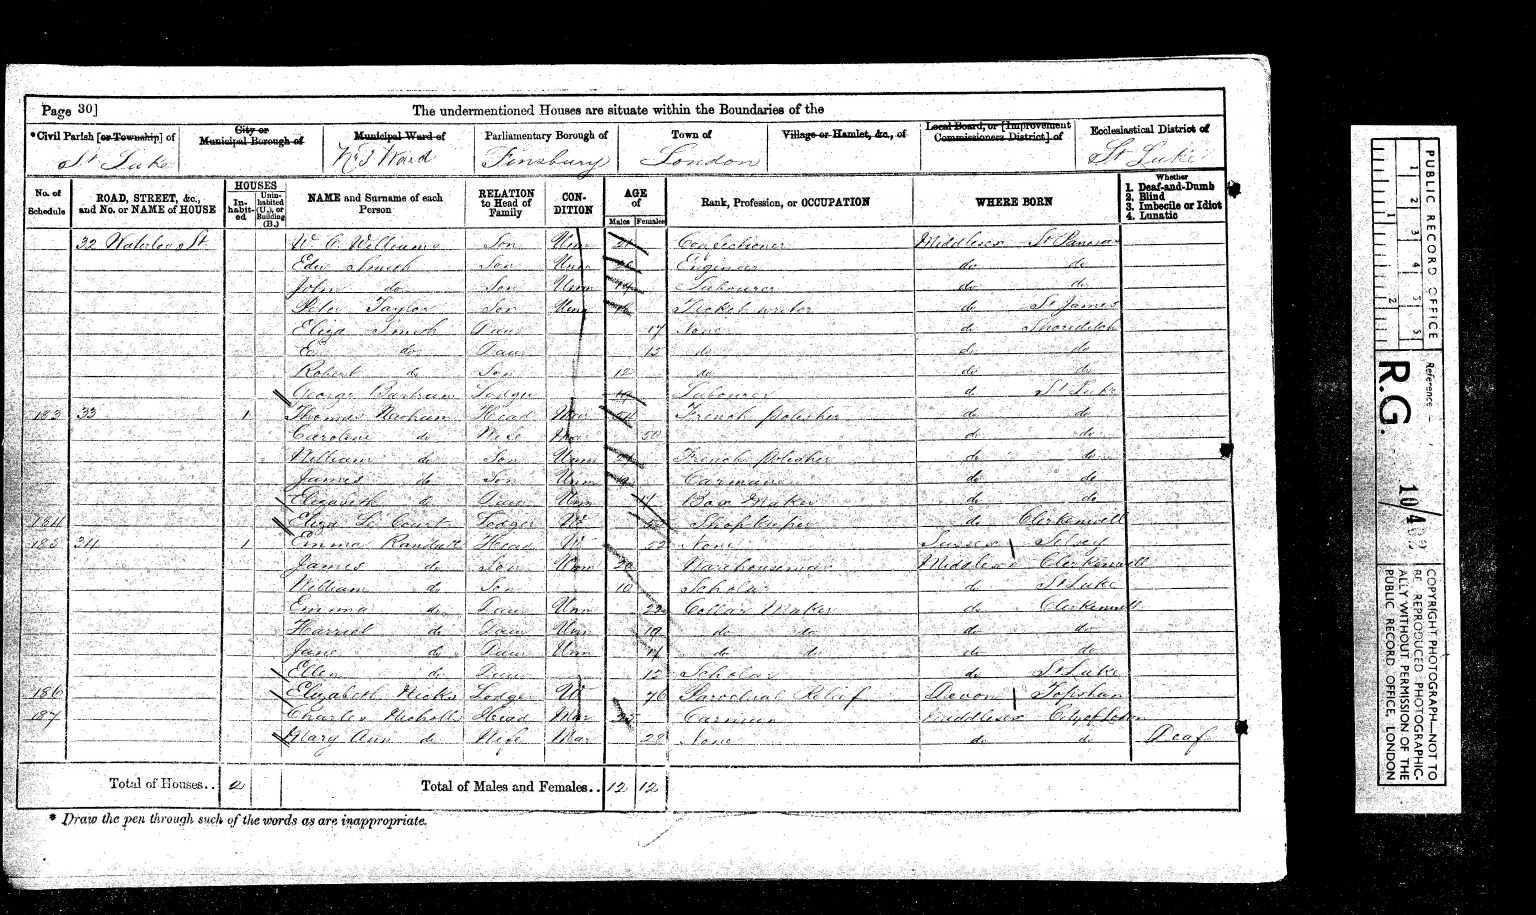 Page 30]
The undermentioned Houses are situate within the Boundaries of the
*Civil Parish [or Township] of
City or Municipal Borough of
Municipal Ward of
Parliamentary Borough of
Town of
Village or Hamlet, &c., of
Local Board, or [Improvement Commissioners District] of
Ecclesiastical District of
St Luke
Ward
Finsbury
London
St Luke
No. of Schedule
ROAD, STREET, &c., and No. or NAME of HOUSE
HOUSES
In-habit-ed
Unin-habited (U.), or Building (B.)
NAME and Surname of each Person
RELATION to Head of Family
CON-DITION
AGE of
Males
Females
Rank, Profession, or OCCUPATION
WHERE BORN
Whether
1. Deaf-and-Dumb
2. Blind
3. Imbecile or Idiot
4. Lunatic
32 Waterloo St W C Williams Son Unm 21 Confectioner Middlesex St Pancras
Smith Son Unm Engineer do do
John do Son Unm 19 Labourer do do
Peter Taylor Son Unm Ticket writer do St James
Eliza Smith Daur 17 None do Shoreditch
do Daur 15 do do do
Robert do Son 12 do do do
George Lodger Labourer do St Luke
183 33 1 Thomas Head Mar 54 French polisher do do
Caroline do Wife Mar 50 do do
William do Son Unm French polisher do do
James do Son Unm Carman do do
Elizabeth do Daur Unm 17 Box Maker do do
184 Eliza Le Court Lodger W Shopkeeper do Clerkenwell
185 34 1 Emma Randall Head W 52 None Sussex Selsey
James do Son Unm 20 Warehouseman Middlesex Clerkenwell
William do Son 10 Scholar do St Luke
Emma do Daur Unm 22 Collar Maker do Clerkenwell
Harriet do Daur Unm 19 do do do do
Jane do Daur Unm do do do do
Ellen do Daur 12 Scholar do St Luke
186 Elizabeth Hicks Lodger W 76 Parochial Relief Devon Topsham
187 Charles Nicholls Head Mar 25 Carman Middlesex City of London
Mary Ann do Wife Mar 28 None do do Deaf
Total of Houses.. 2
Total of Males and Females.. 12 12
* Draw the pen through such of the words as are inappropriate.
PUBLIC RECORD OFFICE
1 2 3 4 5 6
1 2
Reference:-
R.G. 10/402
COPYRIGHT PHOTOGRAPH—NOT TO
BE REPRODUCED PHOTOGRAPHIC-
ALLY WITHOUT PERMISSION OF THE
PUBLIC RECORD OFFICE, LONDON